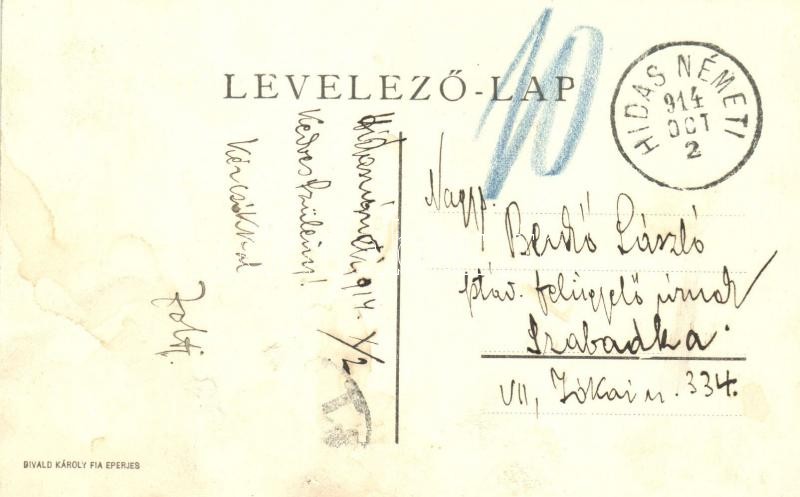 LEVELEZŐ-LAP
10
HIDAS NÉMETI
914
OCT
2
Hidasnémeti, 914. X/2
Kedves Szüleim!
Kézcsókkal
Zolti.
Nagys.
Benkő László
ptáv. felügyelő úrnak
Szabadka.
VII, Jókai u. 334.
DIVALD KÁROLY FIA EPERJES